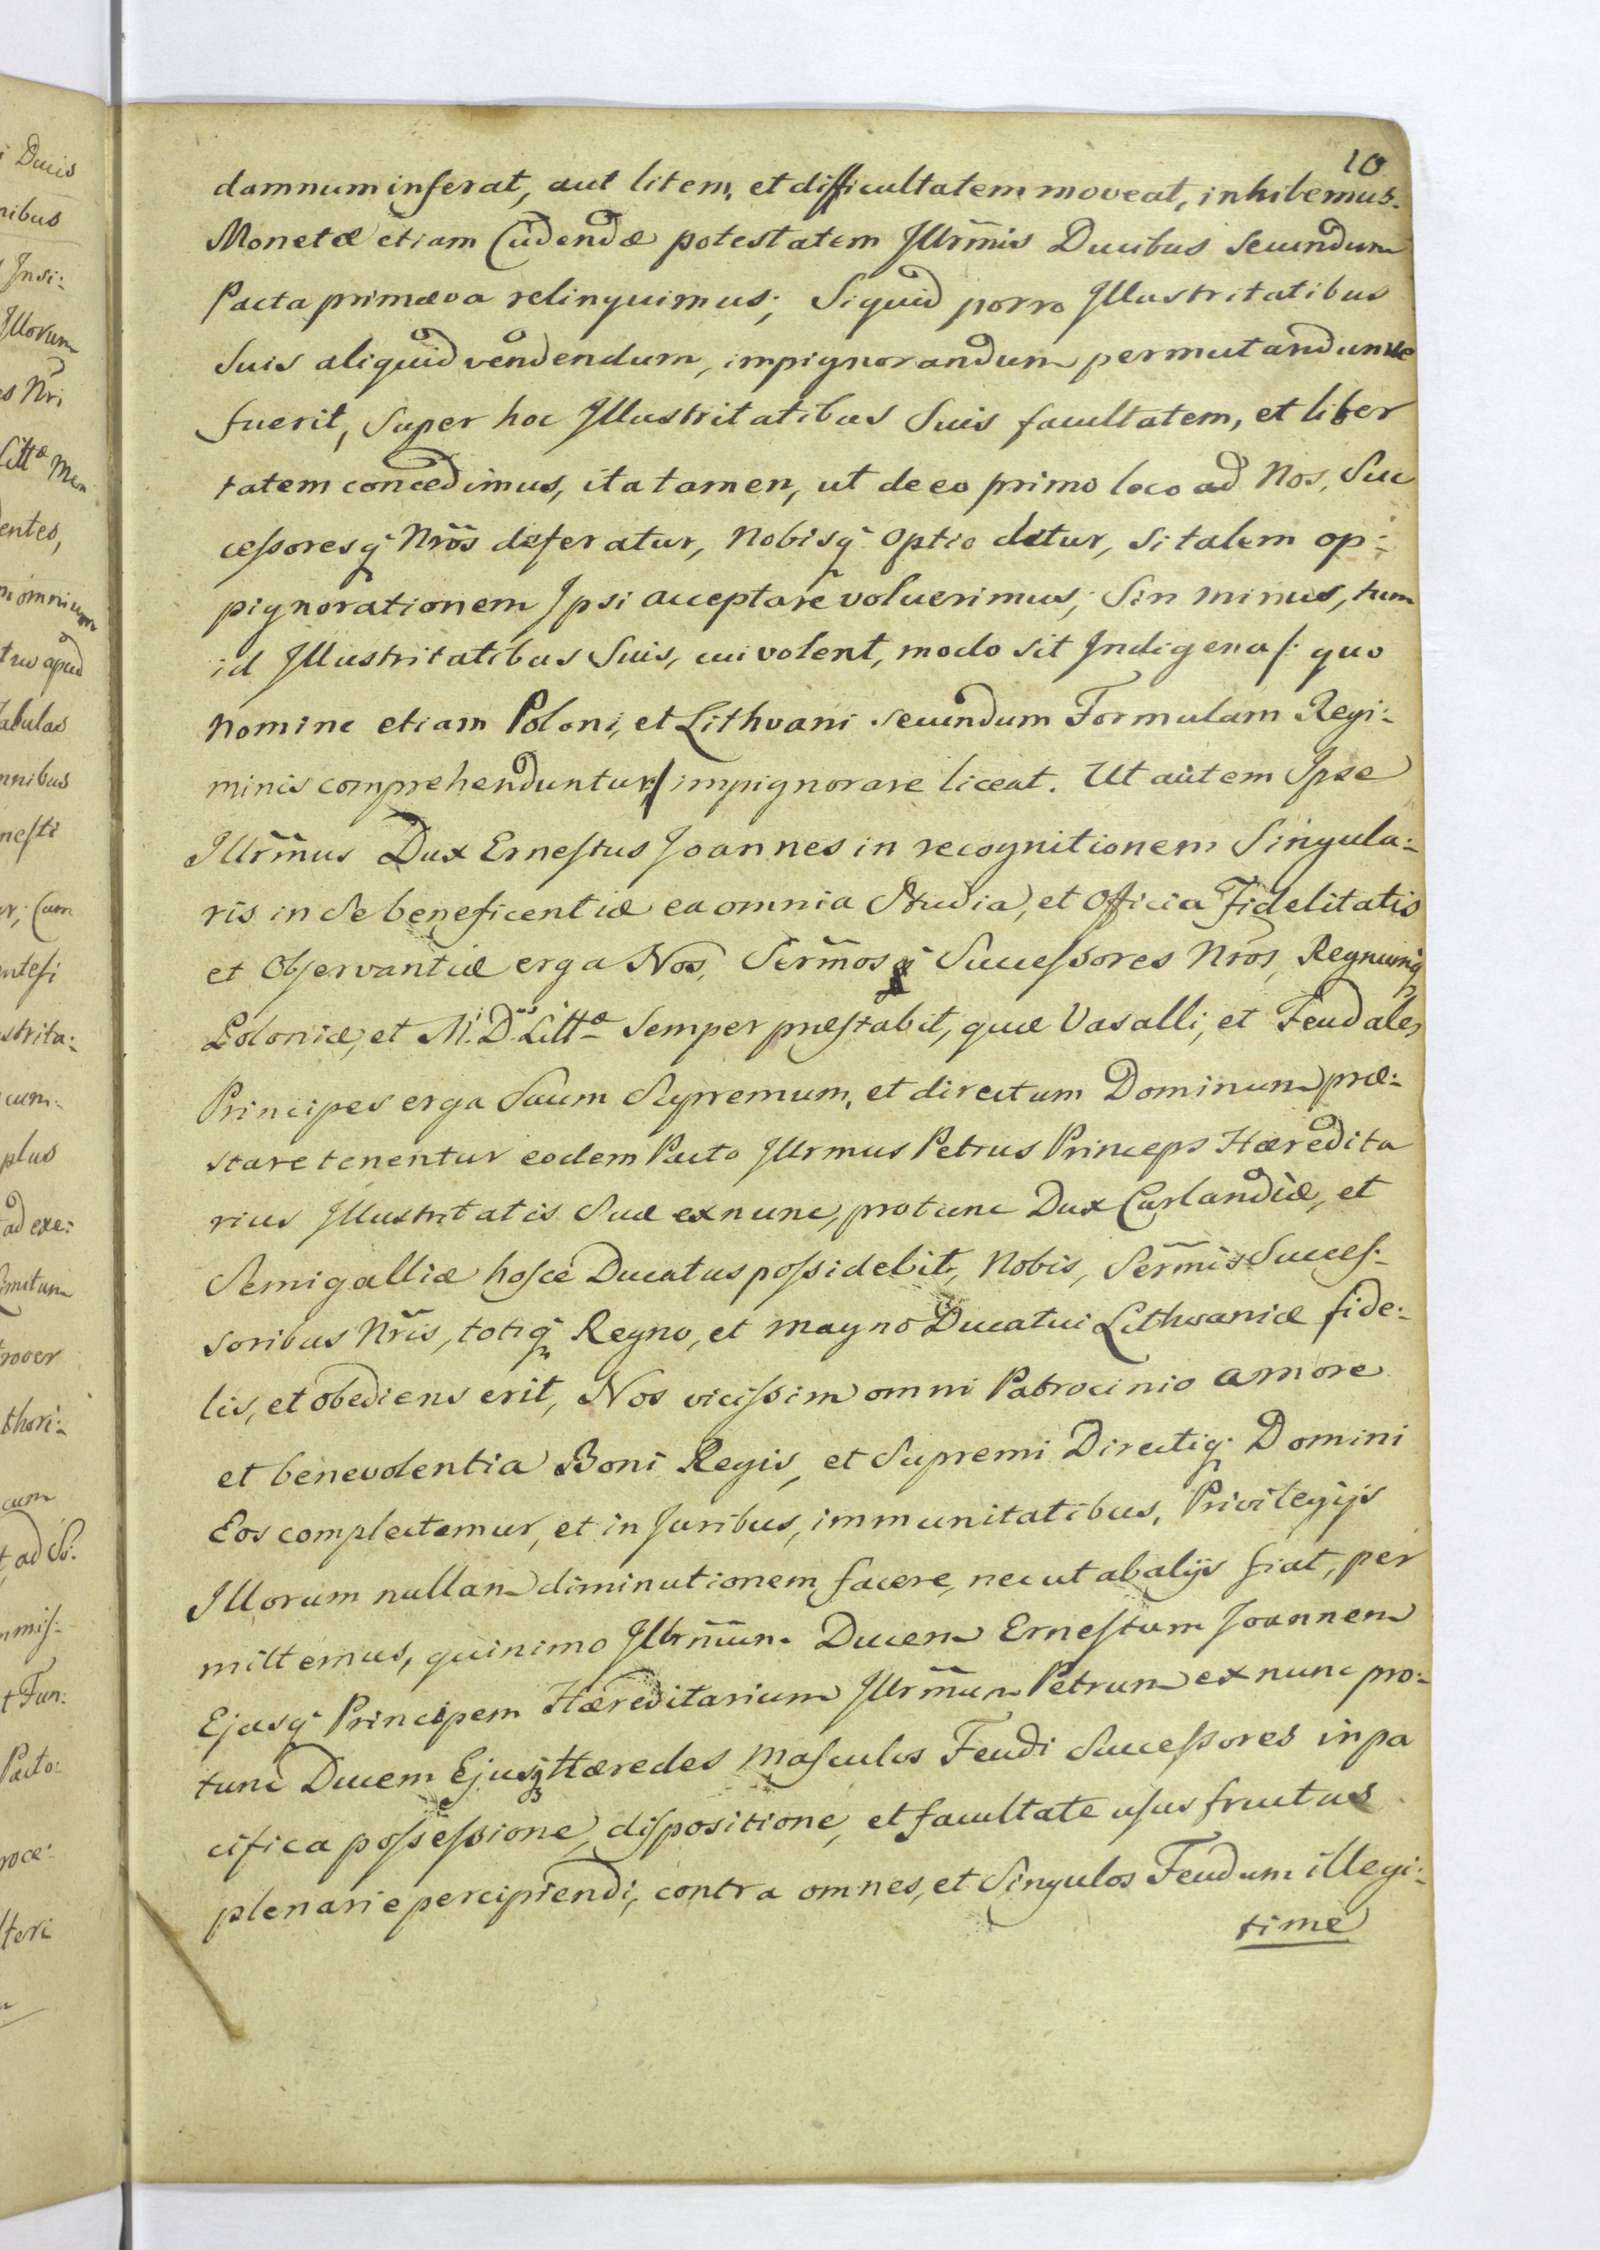 10
damnum inferat, aut litem, et difficultatem moveat, inhibemus.
Monetæ etiam Cudendæ potestatem Jllrm̃is Ducibus secundum
Pacta primæva relinquimus; Siquid porro Jllustritatibus
Suis aliquid vendendum, impignorandum permutandumve
fuerit, Super hoc Jllustritatibus Suis facultatem, et liber
tatem concedimus, ita tamen, ut de eo primo loco ad Nos, Suc
ceſsoresq̃ Nrõs deferatur, Nobisq̃ optio detur, si talem op:
pignorationem Jpsi acceptare voluerimus; Sin minus, tum
id Jllustritatibus Suis, cui volent, modo sit Jndigena /: quo
nomine etiam Poloni, et Lithvani secundum Formulam Regi:
minis comprehenduntur :/ impignorare liceat. Ut autem Jpse
Jllrm̃us Dux Erneſtus Joannes in recognitionem Singula:
ris in Se beneficentiæ ea omnia Studia, et Officia Fidelitatis
et Obſervantiæ erga Nos, Serm̃osq̃ Succeſsores Nros, Regnumq̃
Poloniæ, et M. D. Littæ Semper præſtabit, quæ Vasalli, et Feudales
Principes erga Suum Supremum, et directum Dominum præ:
stare tenentur eodem Pacto Jllrmus Petrus Princeps Hæredita
rius Jllustritatis Suæ ex nunc, pro tunc Dux Curlandiæ, et
Semigalliæ hoſce Ducatus poſsidebit, Nobis, Serm̃is Succeſ:
soribus Nrĩs, totiq̃ Regno, et magno Ducatui Lithvaniæ fide:
lis, et obediens erit, Nos viciſsim omni Patrocinio amore
et benevolentia Boni Regis, et Supremi Directiq̃ Domini
Eos complectemur, et in Juribus, immunitatibus, Privilegijs
Jllorum nullam diminutionem facere, nec ut ab alijs fiat, per
mittemus, quinimo Jllrm̃um Ducem Erneſtum Joannem
Ejusq̃ Principem Hæreditarium Jllrm̃um Petrum ex nunc pro:
tunc Ducem Ejusq̃ Hæredes Maſculos Feudi Succeſsores in pa
cifica poſseſsione, diſpositione, et facultate uſus fructus
plenarie percipiendi, contra omnes, et Singulos Feudum illegi:
time